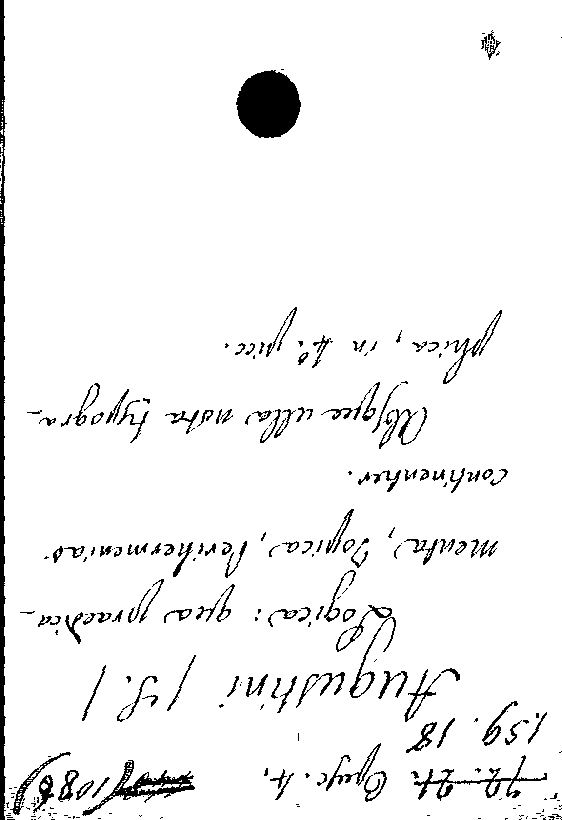 72. 21. Opusc. 4, (1088)
159. 18
Augustini /S./
Logica: qua praedica-
menta, Topica, Perihermenias
continenter.
Absque ulla nota typogra-
phica, in 4º. picc.